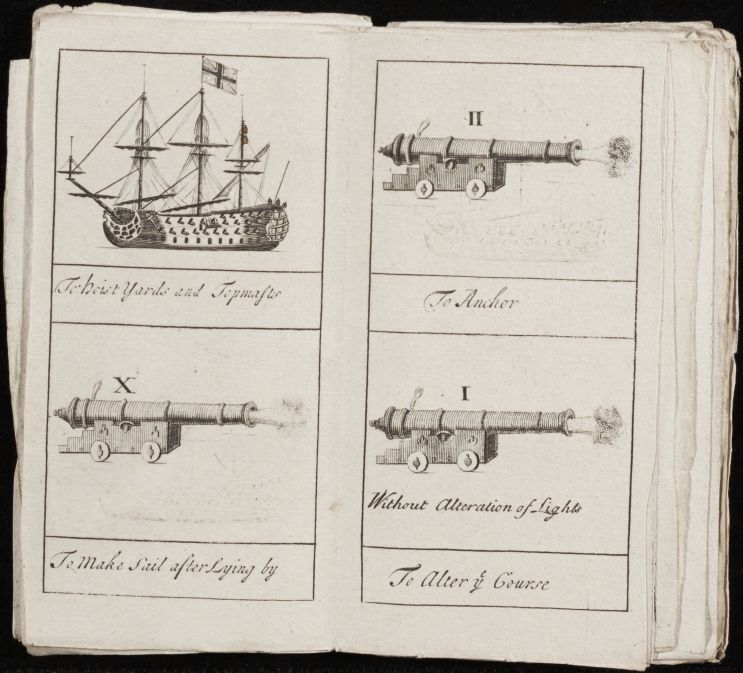 To hoist Yards and Topmaſts
X
To Make Sail after Lying by
II
To Anchor
I
Without Alteration of Lights
To Alter yᵉ Course